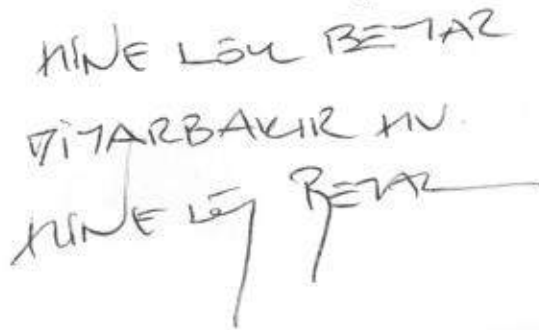 MİNE LÖK BEYAZ
DİYARBAKIR MV.
MİNE LÖK BEYAZ